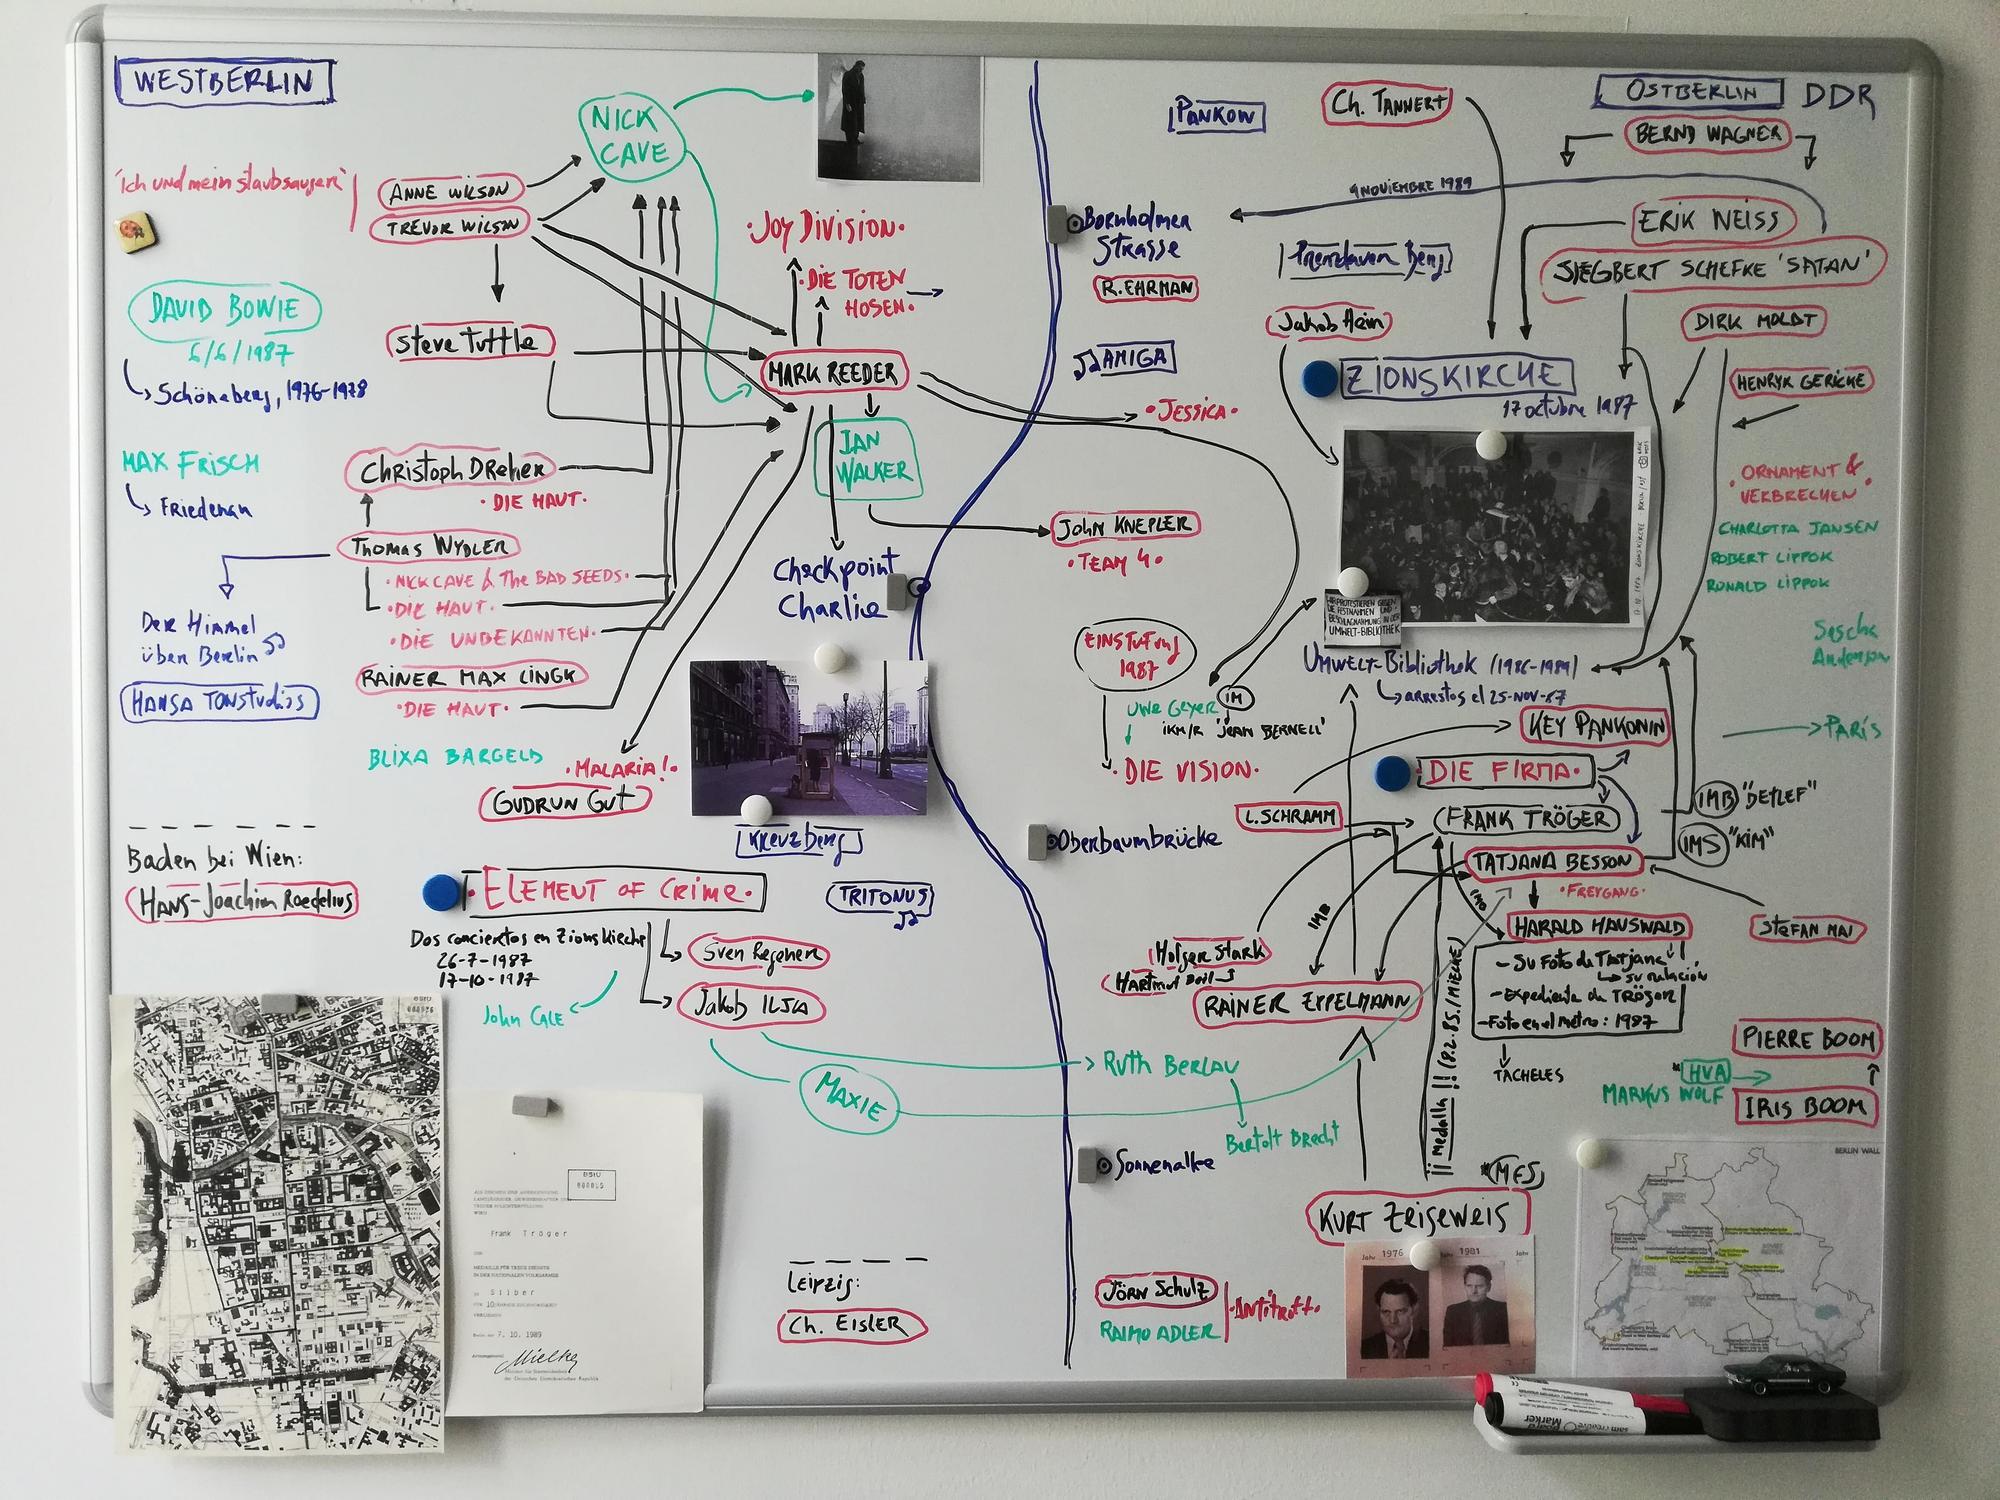 WESTBERLIN
NICK
CAVE
'Ich und mein Staubsauger'
ANNE WILSON
TREVOR WILSON
DAVID BOWIE
6/6/1987
Schöneberg, 1976-1978
Steve Tuttle
·JOY DIVISION·
·DIE TOTEN
HOSEN·
MARK REEDER
IAN
WALKER
MAX FRISCH
Friedenau
Christoph Dreher
·DIE HAUT·
Thomas Wydler
·NICK CAVE & The BAD SEEDS·
·DIE HAUT·
·DIE UNBEKANNTEN·
RAINER MAX LINGK
·DIE HAUT·
Der Himmel
über Berlin
HANSA TONStudios
BLIXA BARGELD
·MALARIA!·
GUDRUN GUT
Checkpoint
Charlie
Kreuzberg
Baden bei Wien:
HANS-Joachim Roedelius
·ELEMENT OF CRIME·
TRITONUS
Dos conciertos en Zionskirche
26-7-1987
17-10-1987
John CALE
Sven Regener
Jakob ILJA
MAXIE
Leipzig:
Ch. EISLER
BStU
Frank Tröger
MEDAILLE FÜR TREUE DIENSTE
IN DER NATIONALEN VOLKSARMEE
Silber
7. 10. 1989
Mielke
OSTBERLIN DDR
PANKOW
Ch. TANNERT
BERND WAGNER
9 NOVIEMBRE 1989
Bornholmer
Strasse
R. EHRMAN
ERIK NEISS
SIEGBERT SCHEFKE 'SATAN'
Jakob Hein
DIRK MOLDT
AMIGA
ZIONSKIRCHE
17 octubre 1987
HENRYK GERICKE
·JESSICA·
·ORNAMENT &
VERBRECHEN·
CHARLOTTA JANSEN
ROBERT LIPPOK
RONALD LIPPOK
Sascha
Anderson
John KNEPLER
·TEAM 4·
WIR PROTESTIEREN GEGEN
DIE FESTNAHMEN UND
BESCHLAGNAHMUNG IN DER
UMWELT-BIBLIOTHEK
UMWELT-Bibliothek (1986-1989)
arrestos el 25-NOV-87
EINSTUFUNG
1987
UWE GEYER
IM
IKM/R 'JEAN BERNELL'
·DIE VISION·
KEY PANKONIN
PARÍS
·DIE FIRMA·
IMB "DETLEF"
L. SCHRAMM
FRANK TRÖGER
IMS "KIM"
Oberbaumbrücke
TATJANA BESSON
·FREYGANG·
IMB
IMB
HARALD HAUSWALD
STEFAN MAI
- Su Foto de Tatjana
su relación
- Expediente de TRÖGER
- Foto en el metro: 1987
TACHELES
Holger Stark
RAINER EPPELMANN
¡¡medalla!! (8.2.85/MIELKE)
Ruth BERLAU
Bertolt Brecht
PIERRE BOOM
HVA
MARKUS WOLF
IRIS BOOM
Sonnenallee
MFS
KURT Zeiseweis
Jahr 1976
Jahr 1981
Jahr
JÖRN Schulz
RAIMO ADLER
·Antitrott·
BERLIN WALL
Marker